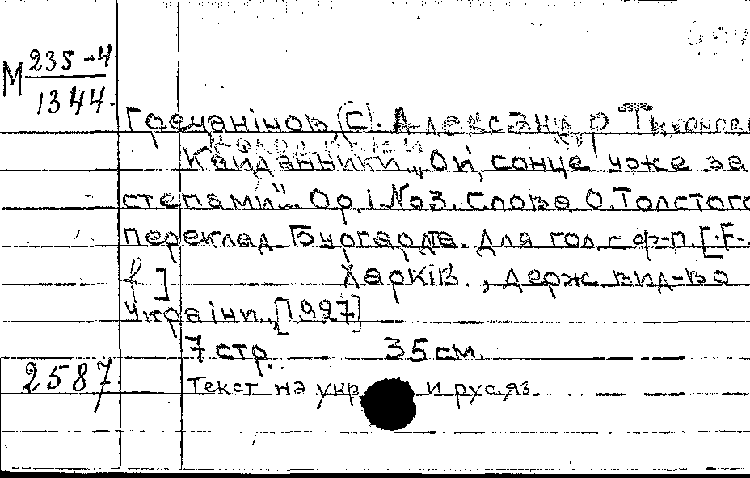 М 235-4
1344.
Гречанінов, (С). Александр Тихонов
Кайданники „Ой, сонце уже за
степами". Ор. 1. №3. Слова О. Толстого
переклад Бургардта. Для гол. - ф-п. [F-
f] Харків., держ. вид-во
України., [1927]
7 стр. 35 см.
2587. Текст на укр. и рус. яз.